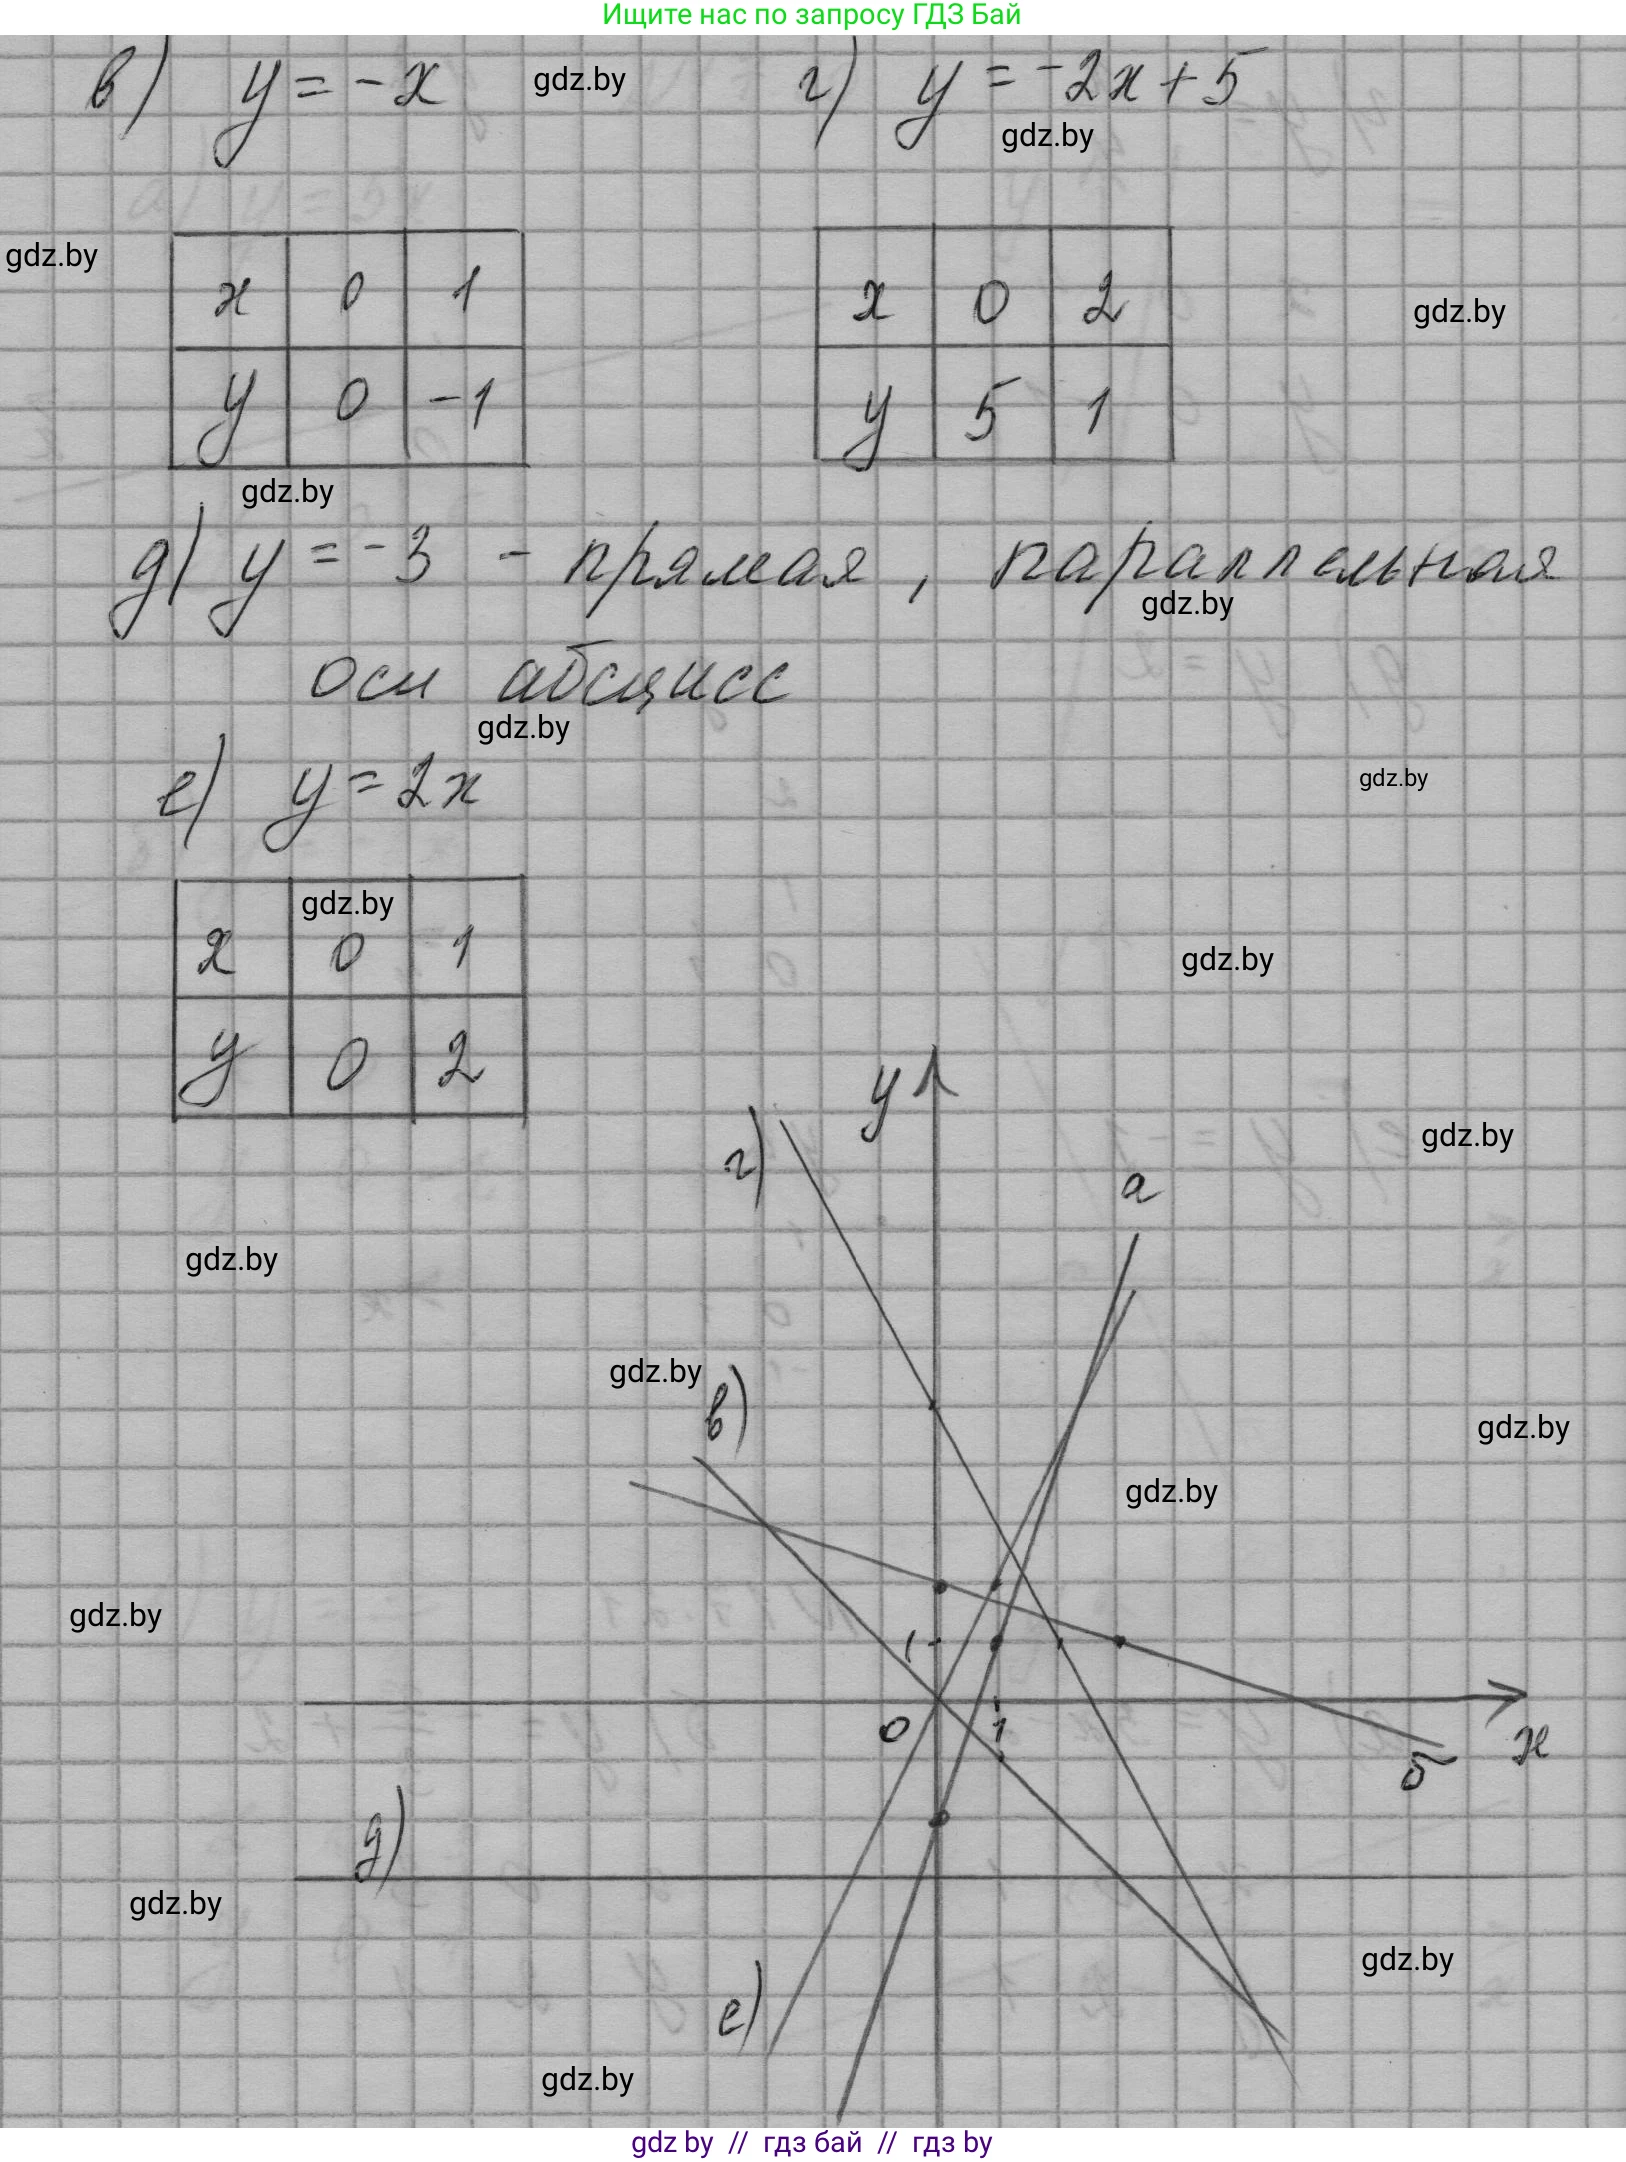 Ищите нас по запросу ГДЗ Бай
в) y = -x gdz.by г) y = -2x + 5
gdz.by
gdz.by
x 0 1
y 0 -1
x 0 2
y 5 1
gdz.by
gdz.by
д) y = -3 - прямая, параллельная
gdz.by
оси абсцисс
gdz.by
е) y = 2x
gdz.by
gdz.by
x 0 1
y 0 2
gdz.by
y
г)
a
gdz.by
gdz.by
gdz.by
в)
gdz.by
gdz.by
gdz.by
1
0
1
x
б
д)
gdz.by
gdz.by
е)
gdz.by
gdz by // гдз бай // гдз by